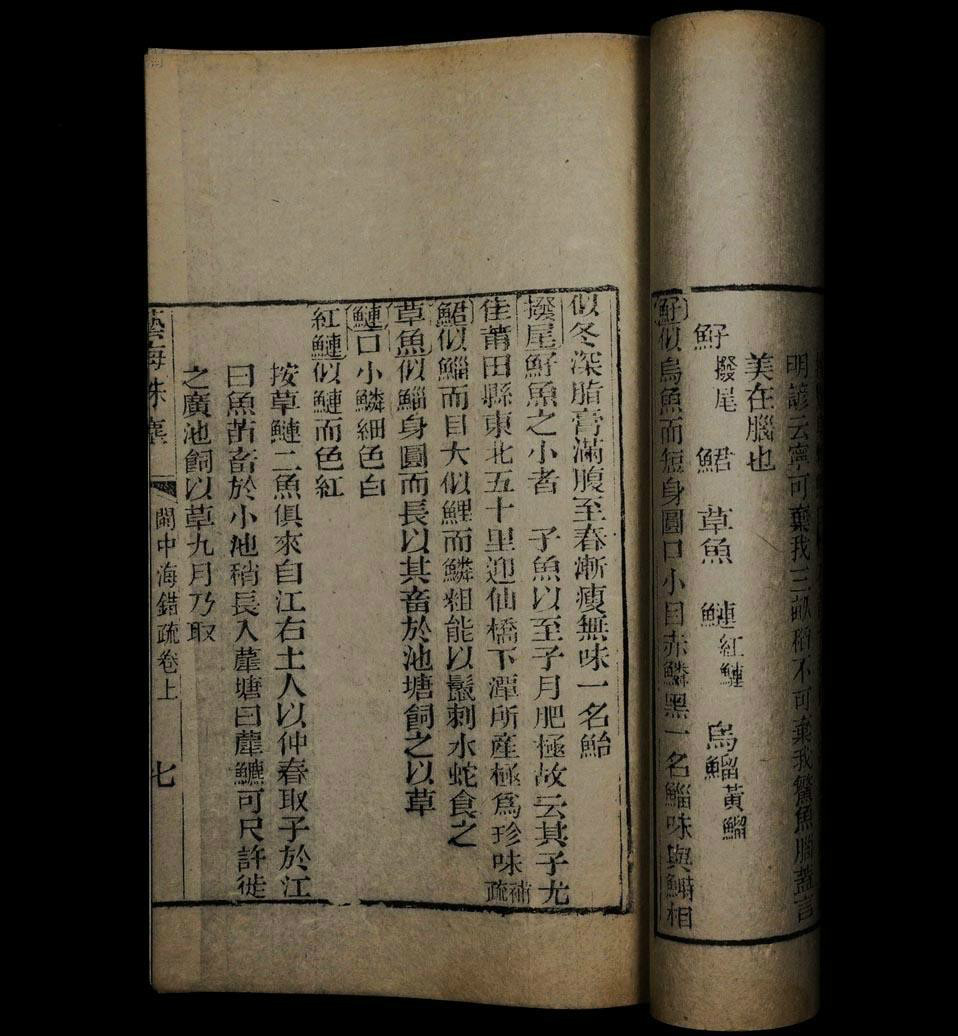 明諺云寧可棄我三畝稻不可棄我鮆魚腦蓋言
美在腦也
魣撥尾 鮶 草魚 鰱紅鰱 烏鰡黃鰡
魣似烏魚而短身圓口小目赤鱗黑一名鯔味與鰣相
似冬深脂膏滿腹至春漸瘦無味一名鮐
撥尾魣魚之小者 子魚以至子月肥極故云其子尤
佳莆田縣東北五十里迎仙橋下潭所產極為珍味補疏
鮶似鯔而目大似鯉而鱗粗能以鬛刺水蛇食之
草魚似鯔身圓而長以其畜於池塘飼之以草
鰱口小鱗細色白
紅鰱似鰱而色紅
按草鰱二魚俱來自江右土人以仲春取子於江
曰魚苗畜於小池稍長入䕠塘曰䕠𩼰可尺許徙
之廣池飼以草九月乃取
藝海珠塵 閩中海錯疏卷上 七